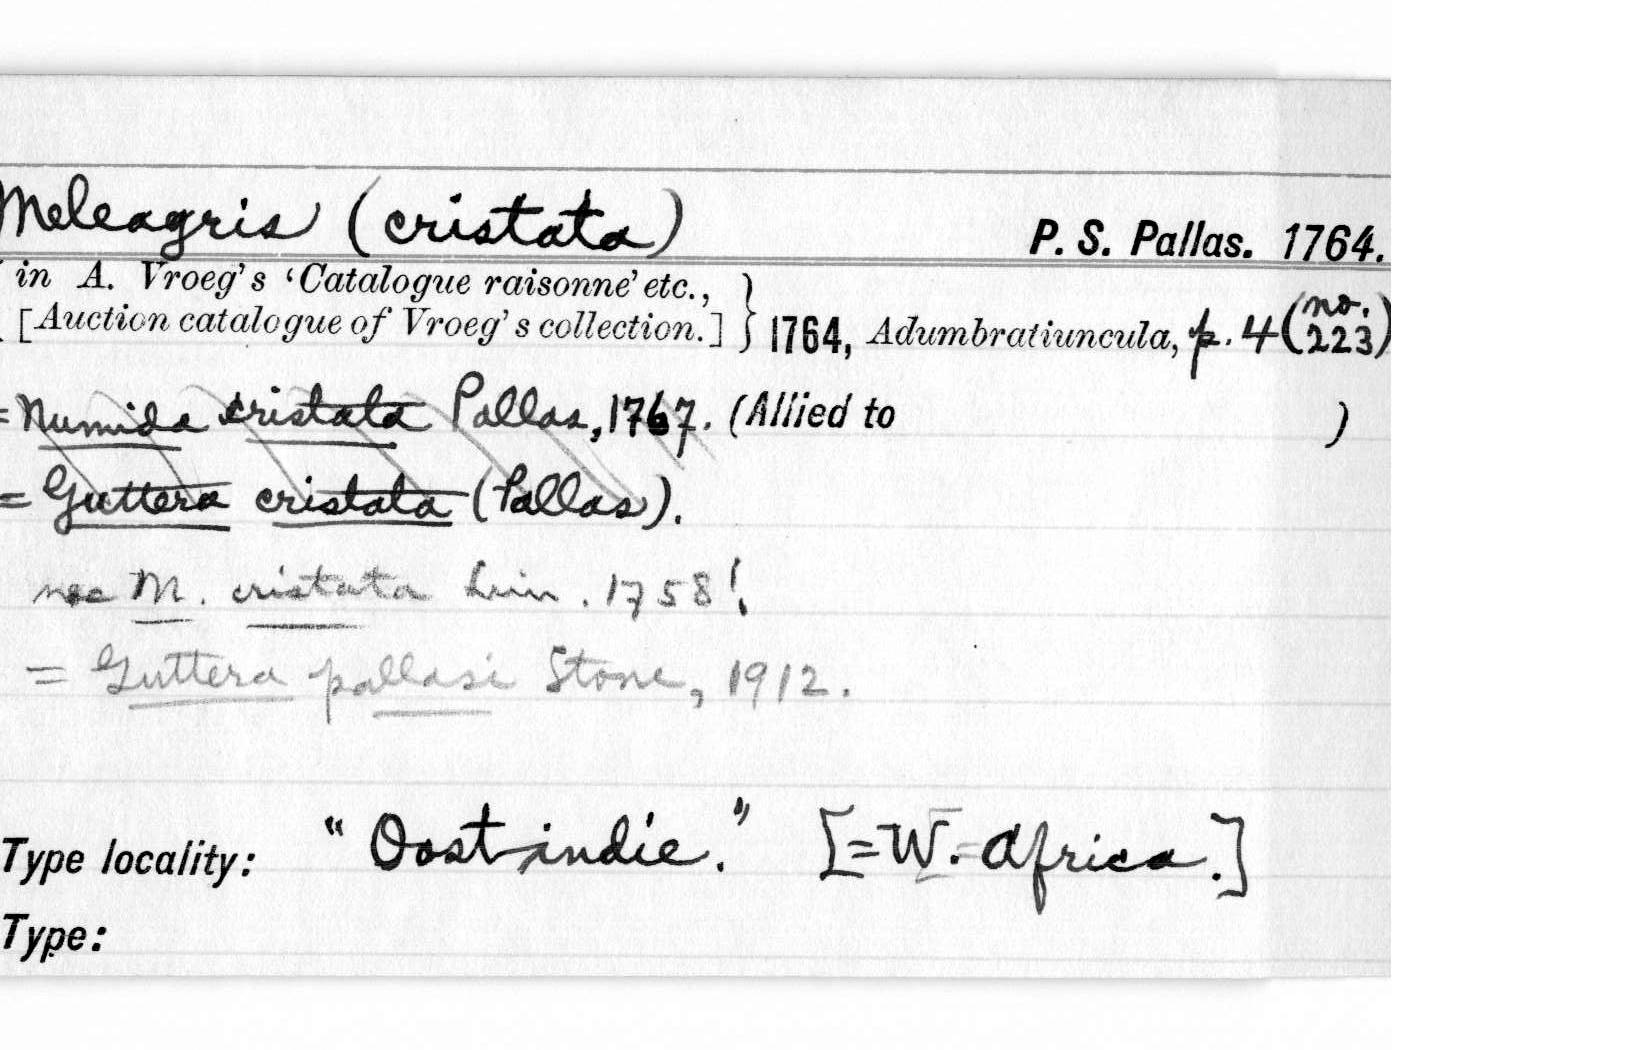 Meleagris (cristata) P. S. Pallas. 1764.
in A. Vroeg's 'Catalogue raisonne' etc.,
[Auction catalogue of Vroeg's collection.] } 1764, Adumbratiuncula, p. 4 (no. 223)
= Numida cristata Pallas, 1767. (Allied to )
= Guttera cristata (Pallas).
nec M. cristata Linn. 1758!
= Guttera pallasi Stone, 1912.
Type locality: "Oost-indie." [=W. Africa.]
Type: